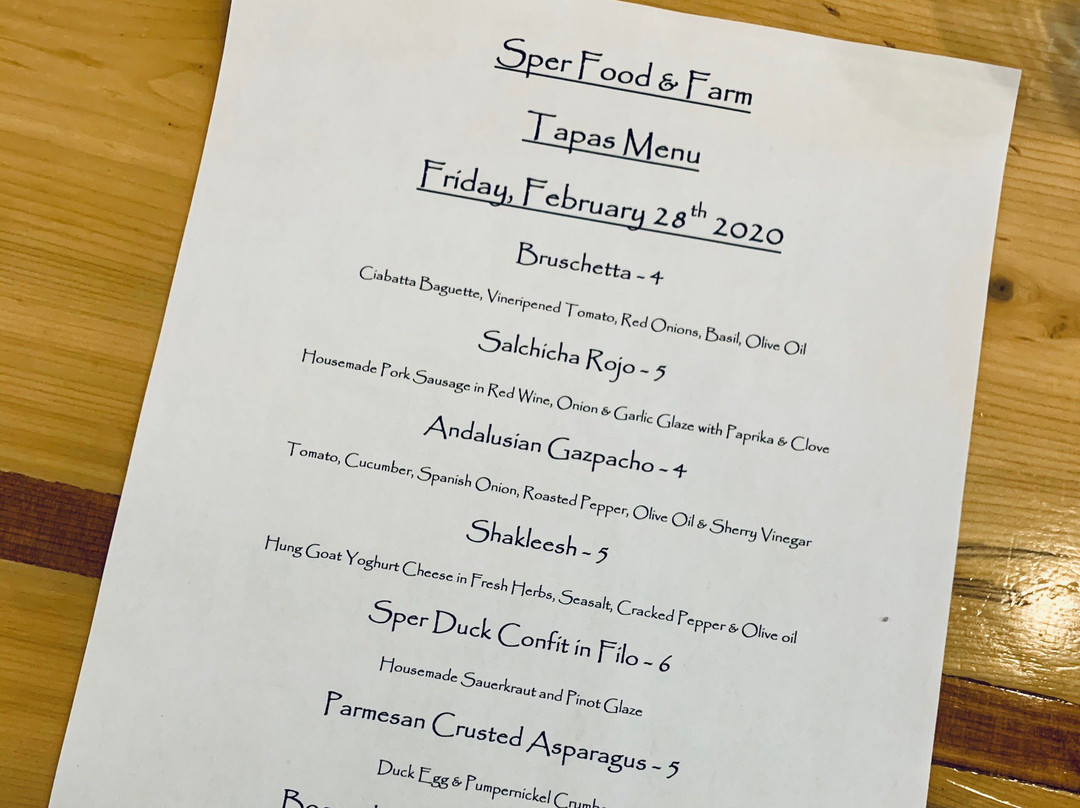 Sper Food & Farm
Tapas Menu
Friday, February 28th 2020
Bruschetta - 4
Ciabatta Baguette, Vineripened Tomato, Red Onions, Basil, Olive Oil
Salchicha Rojo - 5
Housemade Pork Sausage in Red Wine, Onion & Garlic Glaze with Paprika & Clove
Andalusian Gazpacho - 4
Tomato, Cucumber, Spanish Onion, Roasted Pepper, Olive Oil & Sherry Vinegar
Shakleesh - 5
Hung Goat Yoghurt Cheese in Fresh Herbs, Seasalt, Cracked Pepper & Olive oil
Sper Duck Confit in Filo - 6
Housemade Sauerkraut and Pinot Glaze
Parmesan Crusted Asparagus - 5
Duck Egg & Pumpernickel